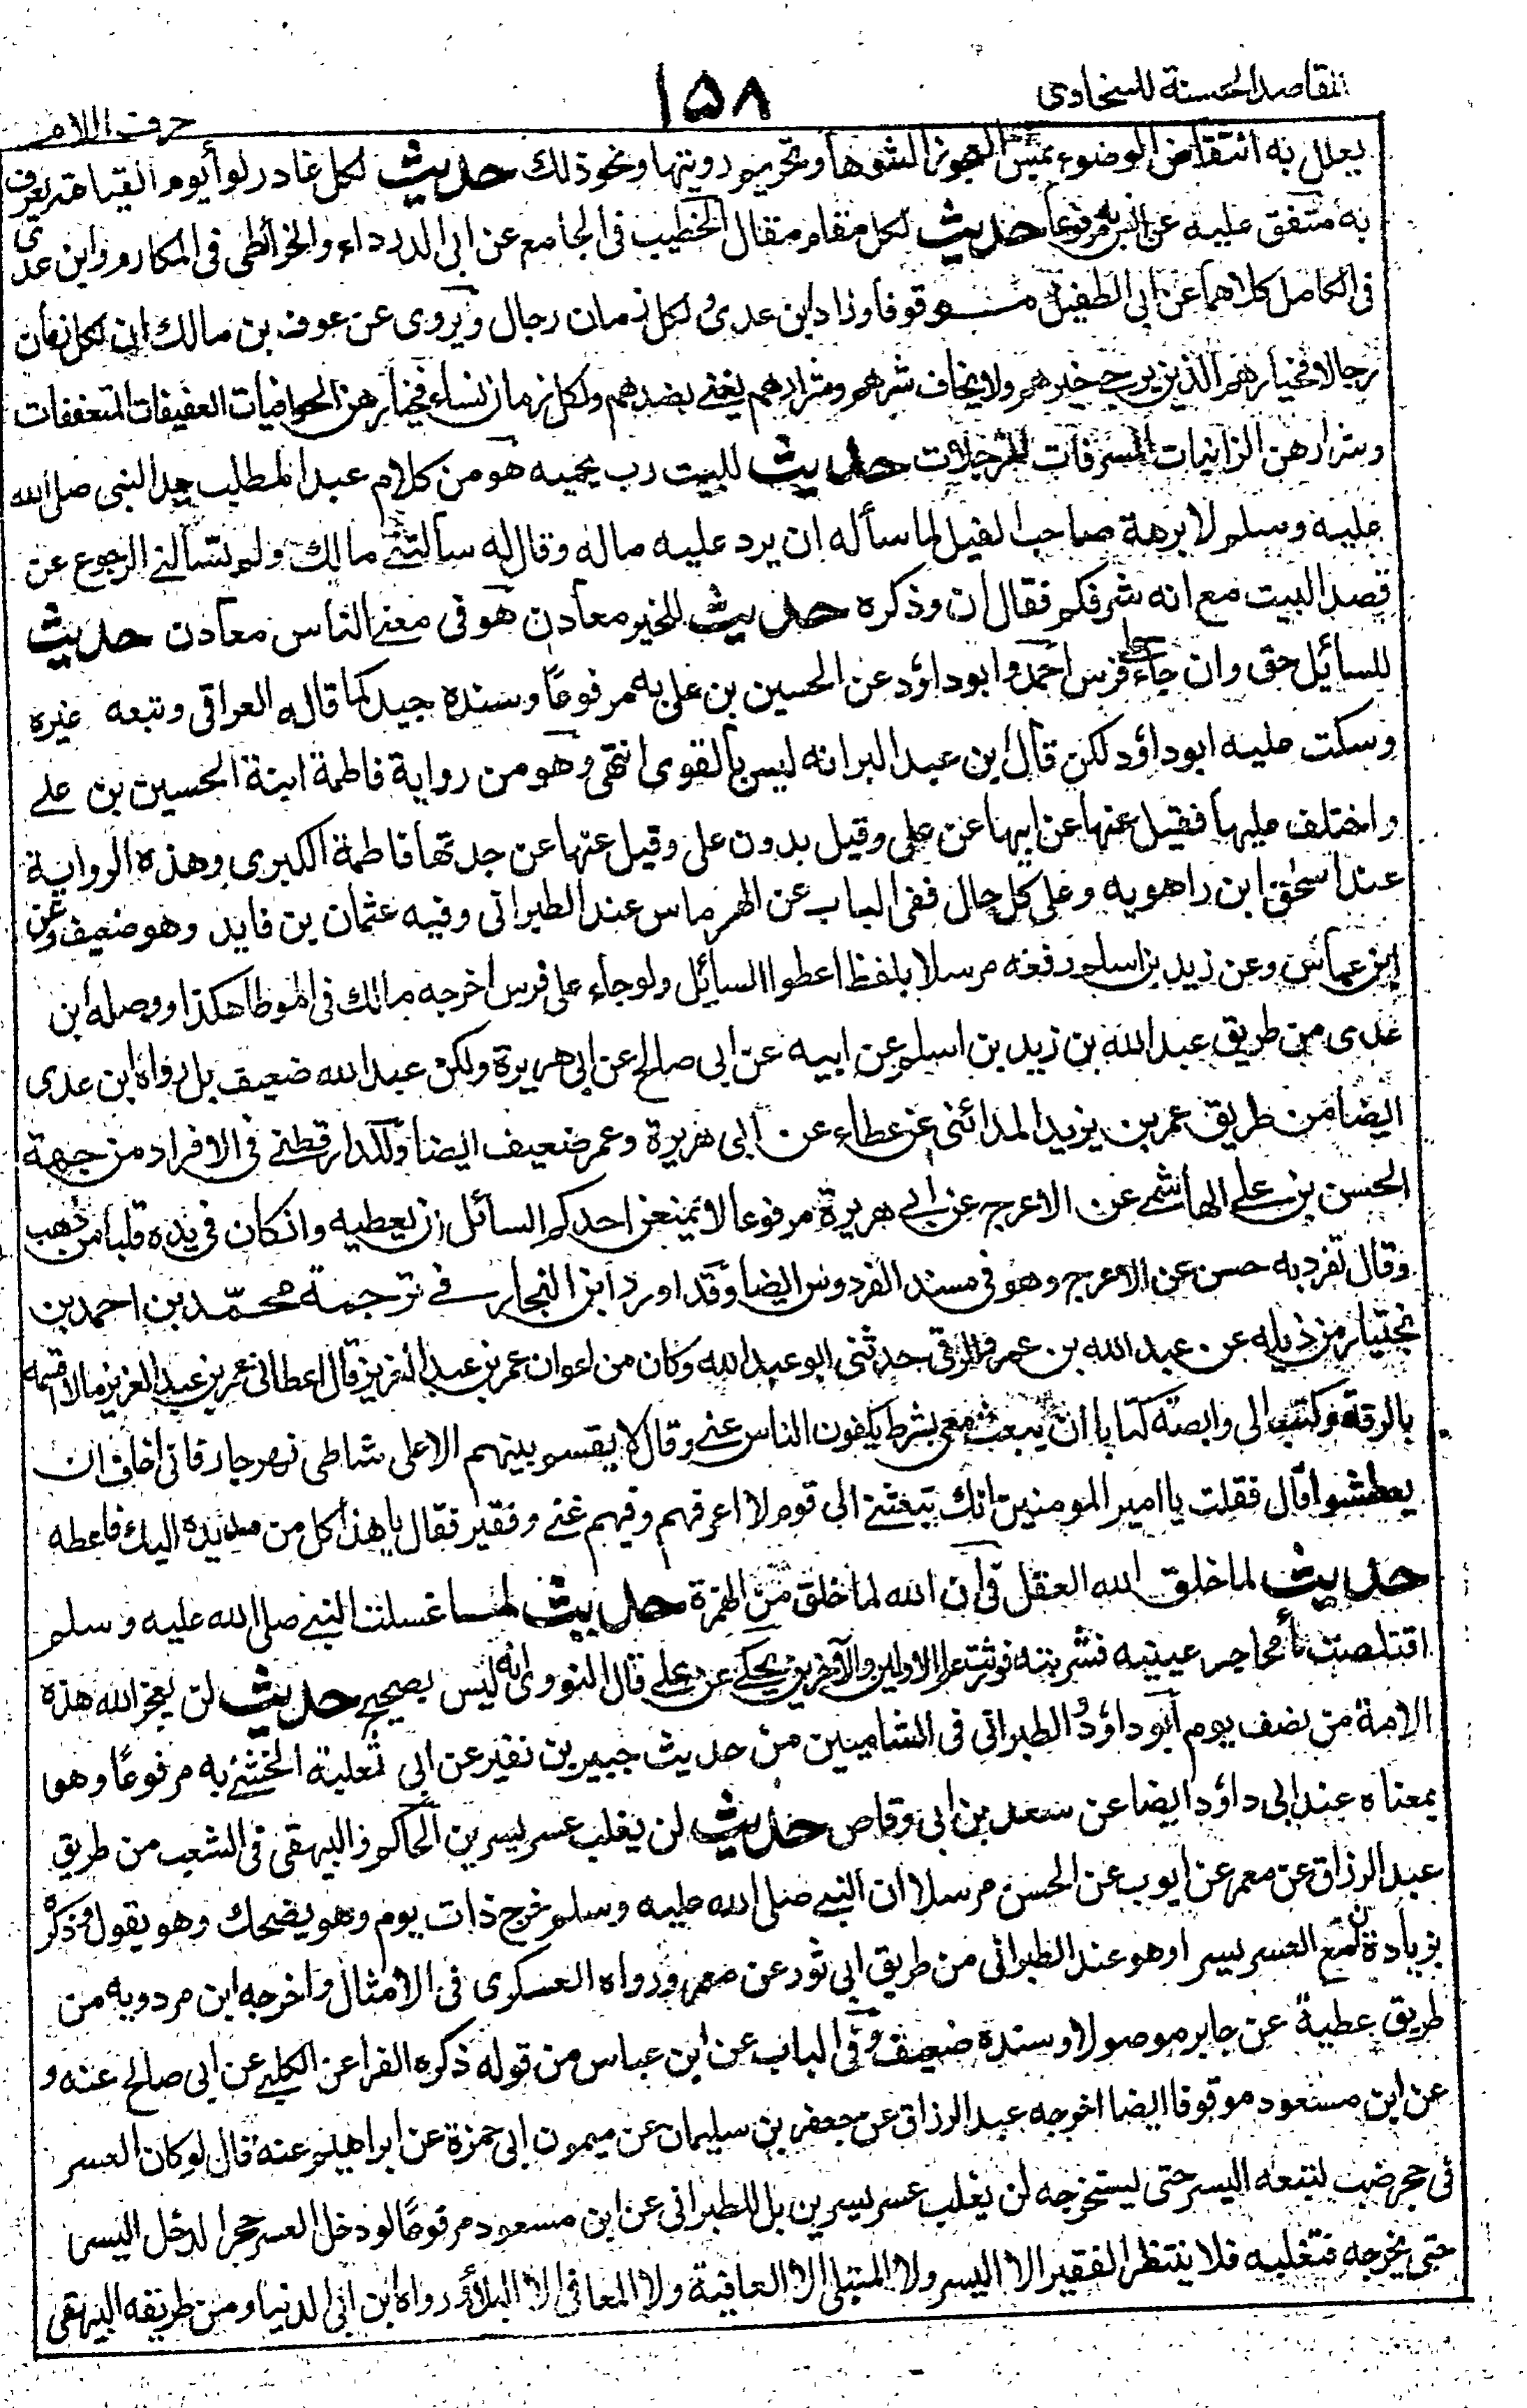 المقاصد الحسنة للسخاوى
١٥٨
حرف اللام
يعلل به انتقاض الوضوء بمس العجوز الشوها وتحريم رويتها ونحو ذلك حديث لكل غادر لوأ يوم القيامة يعرف
به متفق عليه عن انس به مرفوعا حديث لكل مقام مقال الخطيب فى الجامع عن ابى الدرداء والخرائطى فى المكارم وابن عدى
فى الكامل كلاهما عن ابى الطفيل موقوفا وزاد ابن عدى ولكل زمان رجال ويروى عن عوف بن مالك ان لكل زمان
رجالا فخيارهم الذين يرجى خيرهم ولا يخاف شرهم وشرارهم يعنے بضدهم ولكل زمان نساء فخيارهن الحوافيات العفيفات المتعففات
وشرارهن الزانيات المسرفات المترجلات حديث للبيت رب يحميه هو من كلام عبد المطلب جد النبى صلى الله
عليه وسلم لابرهة صاحب الفيل لما سأله ان يرد عليه ماله وقال له سألتنے مالك ولم تسألنے الرجوع عن
قصد البيت مع انه شرفكم فقال ان وذكره حديث للخير معادن هو فى معنے الناس معادن حديث
للسائل حق وان جاء على فرس احمد وابو داؤد عن الحسين بن على به مرفوعًا وسنده جيد كما قاله العراقى وتبعه غيره
وسكت عليه ابو داؤد لكن قال ابن عبد البر انه ليس بالقوى انتهى وهو من رواية فاطمة ابنة الحسين بن علے
واختلف عليها فقيل عنها عن ابيها عن على وقيل بدون على وقيل عنها عن جدتها فاطمة الكبرى وهذه الرواية
عند اسحٰق ابن راهويه وعلى كل حال ففى الباب عن الهرماس عند الطبرانى وفيه عثمان بن فايد وهو ضعيف وعن
ابن عباس وعن زيد بن اسلم رفعه مرسلا بلفظ اعطوا السائل ولو جاء على فرس اخرجه مالك فى الموطا هكذا ووصله ابن
عدى من طريق عبد الله بن زيد بن اسلم عن ابيه عن ابى صالح عن ابى هريرة ولكن عبد الله ضعيف بل رواه ابن عدى
ايضا من طريق عمر بن يزيد المدائنى عن عطاء عن ابى هريرة وعمر ضعيف ايضا وللدارقطنے فى الافراد من جهة
الحسن بن علے الهاشمے عن الاعرج عن ابے هريرة مرفوعا لا يمنعن احدكم السائل ان يعطيه وانكان فى يده قلبا من ذهب
وقال تفرد به حسن عن الاعرج وهو فى مسند الفردوس ايضا وقد اورد ابن النجار فے ترجمة محمد بن احمد بن
بختيار من ذيله عن عبد الله بن عمرو الرقى حدثنى ابو عبد الله وكان من اعوان عمر بن عبد العزيز قال اعطانى عمر بن عبد العزيز مالا اقسمه
بالرقة وكتب الى وابصة كتابا ان يبعث معى بشرط يكفون الناس عنے وقال لا يقسم بينهم الا على شاطى نهر جار فانى اخاف ان
يعطشوا قال فقلت يا امير المومنين انك تبعثنے الى قوم لا اعرفهم وفيهم غنے وفقير فقال يا هذا كل من مد يده اليك فاعطه
حديث لما خلق الله العقل فى ان الله لما خلق من الهمزة حديث لما غسلت النبے صلى الله عليه وسلم
اقتلصت مأ محاجر عينيه فشربته فورثت علم الاولين والآخرين يحكے عن علے قال النووى انه ليس بصحيح حديث لن يعجز الله هذه
الامة من نصف يوم ابو داؤد والطبرانى فى الشاميين من حديث جبير بن نفير عن ابى ثعلبة الخشنے به مرفوعًا وهو
بمعناه عند ابى داؤد ايضا عن سعد بن ابى وقاص حديث لن يغلب عسر يسرين الحاكم والبيهقى فى الشعب من طريق
عبد الرزاق عن معمر عن ايوب عن الحسن مرسلا ان النبے صلى الله عليه وسلم خرج ذات يوم وهو يضحك وهو يقول وذكره
بزيادة ان مع العسر يسرا وهو عند الطبرانى من طريق ابى ثور عن معمر ورواه العسكرى فى الامثال واخرجه ابن مردويه من
طريق عطية عن جابر موصولا وسنده ضعيف وفى الباب عن ابن عباس من قوله ذكره الفرا عن الكلبے عن ابى صالح عنه و
عن ابن مسعود موقوفا ايضا اخرجه عبد الرزاق عن جعفر بن سليمان عن ميمون ابى حمزة عن ابراهيم عنه قال لو كان العسر
فى حجر ضب لتبعه اليسر حتى يستخرجه لن يغلب عسر يسرين بل للطبرانى عن ابن مسعود مرفوعًا لو دخل العسر حجرا لدخل اليسر
حتى يخرجه فتغلبه فلا ينتظر الفقير الا اليسر ولا المبتلى الا العافية ولا المعافى الا البلاء ورواه ابن ابى الدنيا ومن طريقه البيهقى